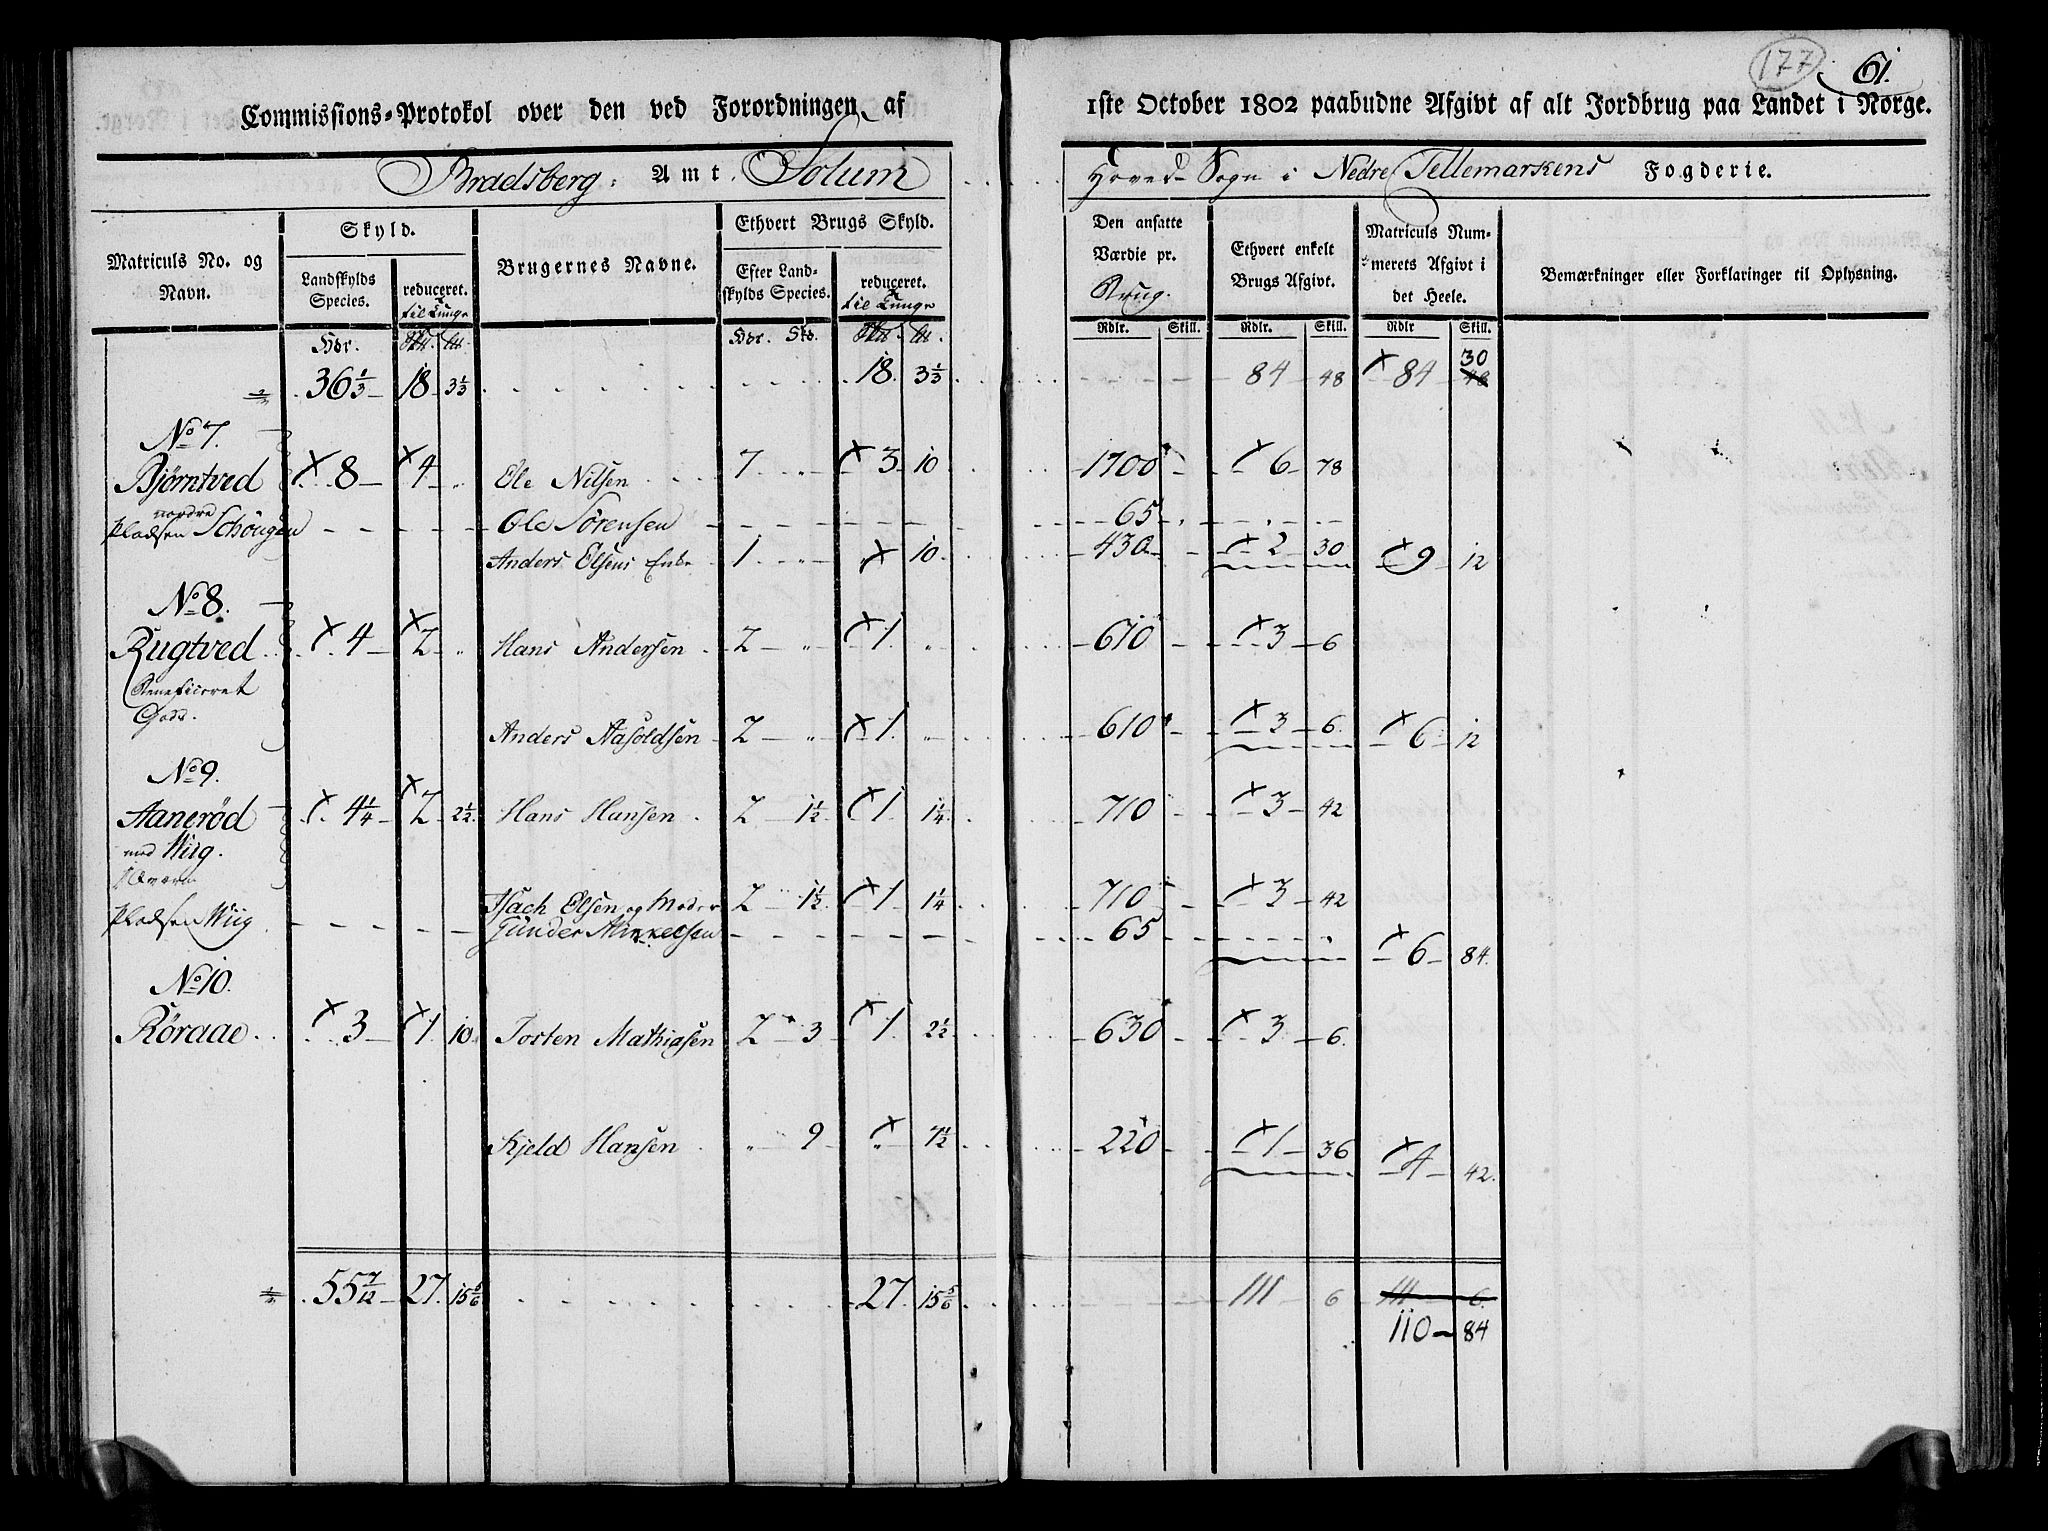 177 61.
Commissions-Protokol over den ved Forordningen af 1ste October 1802 paabudne Afgivt af alt Jordbrug paa Landet i Norge.
Bradsberg Amt. Solum Hoved-Sogn i Nedre Tellemarkens Fogderie.
Matriculs No. og Navn.
Skyld.
Landskylds Species.
reduceret. til Tunge
Brugernes Navne.
Ethvert Brugs Skyld.
Efter Landskylds Species.
reduceret. til Tunge
Den ansatte Værdie pr. Brug.
Ethvert enkelt Brugs Afgivt.
Matriculs Nummerets Afgivt i det Heele.
Bemærkninger eller Forklaringer til Oplysning.
Rdlr. Skill. Rdlr. Skill. Rdlr Skill.
36 1/3 18 3 1/3 18. 3 1/3 84 48 84 30
No 7.
Bjørntved 8 4 Ele Nilsen 7 3 10 1700 6 78
nordre
Pladsen Schougen Ole Sørensen 65
Anders Elsens Enke 1 10 430 2 30 9 12
No 8.
Rugtved 4 2 Hans Andersen 2 1 670 3 6
Beneficeret
Gods.
Anders Aasoldsen 2 1 610 3 6 6 12
No 9.
Aanerød 4 1/4 2 2 1/2 Hans Hansen 2 1 1/2 1 1 1/4 710 3 42
med Wiig.
Isach Elsen og Moder 2 1 1/2 1 1 1/4 710 3 42
Pladsen Wiig Gunder Mikkelsen 65
6 84.
No 10.
Røraae 3 1 10 Torsten Mathiasen 2 3 1 2 1/2 630 3 6
Kjeld Hansen 9 7 1/2 220 1 36 4 42.
55 7/12 27 15 5/6 27 15 5/6 111 6 111 6
110 84